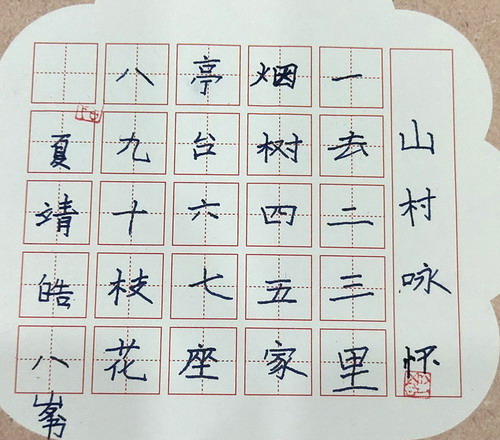 山村咏怀
一去二三里
烟树四五家
亭台六七座
八九十枝花
夏靖皓八岁